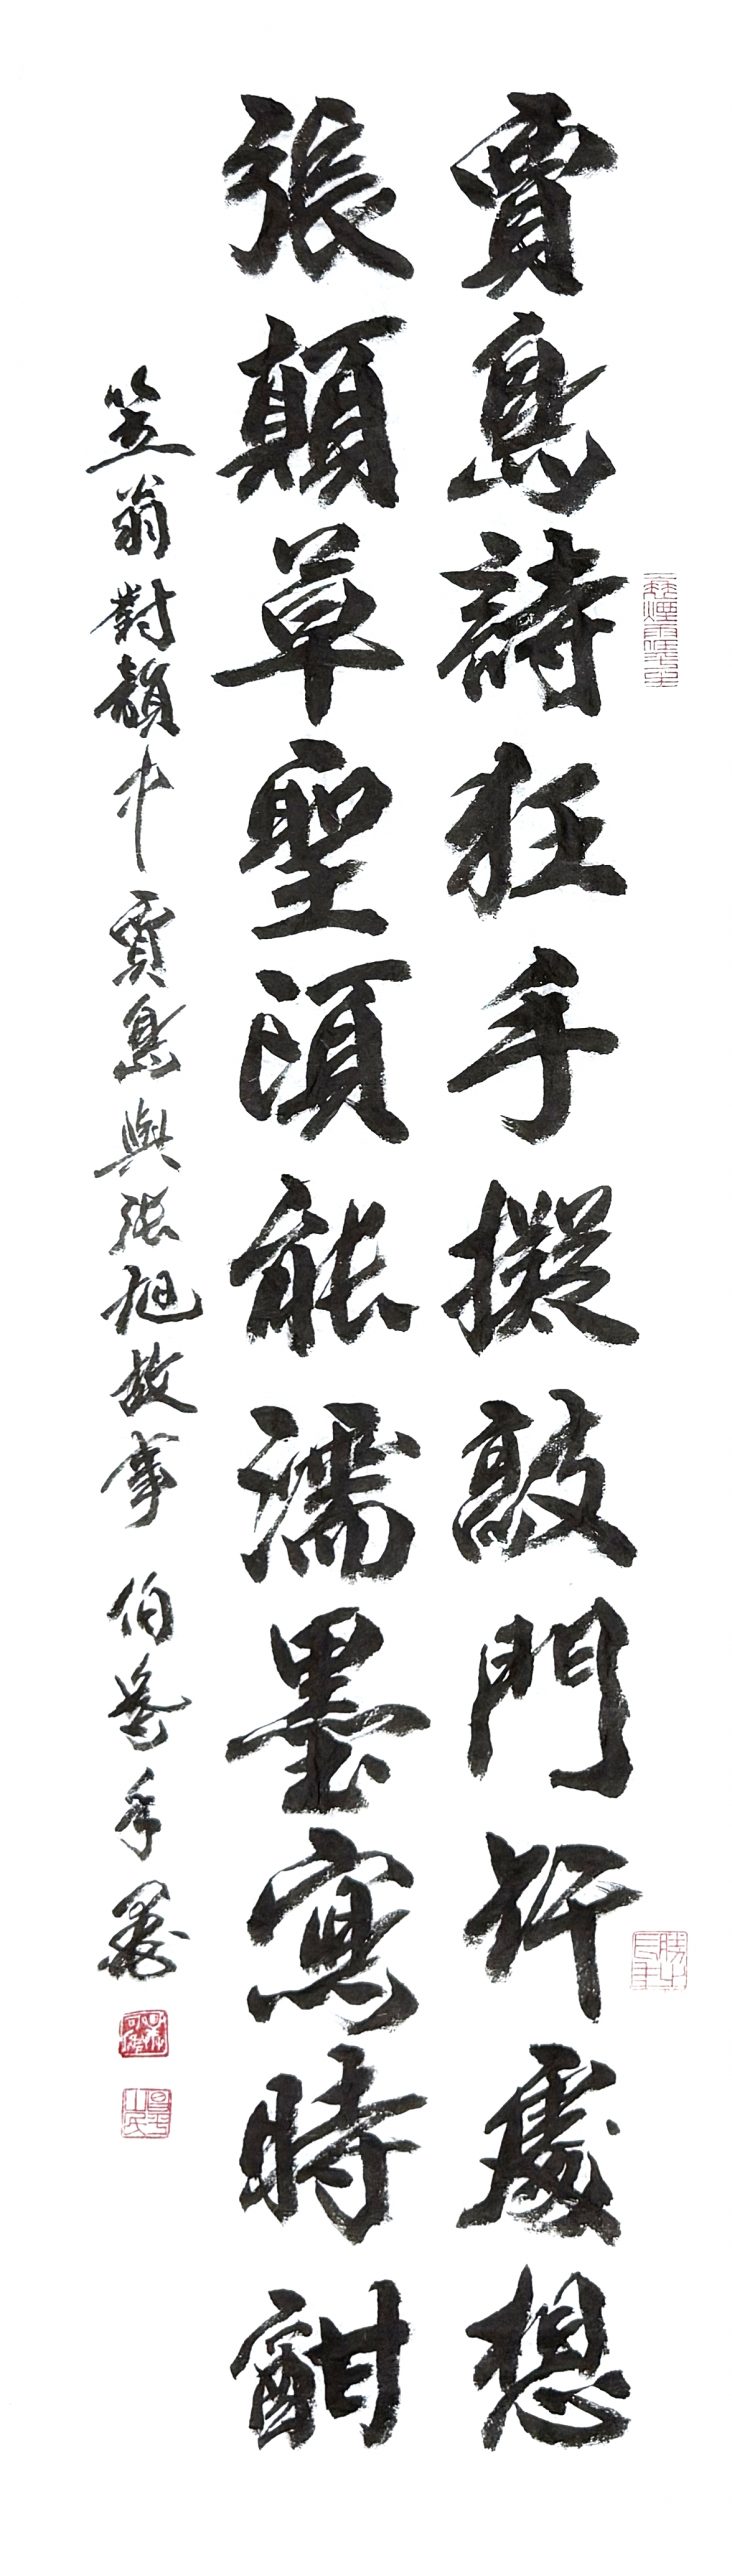 賈島詩狂手擬敲門行處想
張顛草聖頭能濡墨寫時酣
笠翁對韻中賈島與張旭故事 伯爸手墨